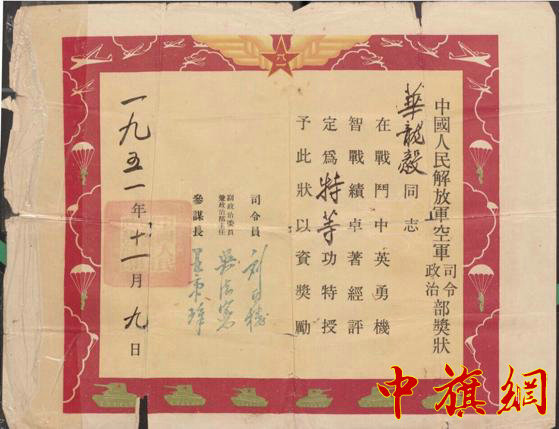 中國人民解放軍空軍司令政治部獎狀
華龍毅同志
在戰鬥中英勇機
智戰績卓著經評
定爲特等功特授
予此狀以資獎勵
司令員 刘亚楼
副政治委員
兼政治部主任 吳法憲
參謀長 王秉璋
一九五一年十一月九日
中旗網